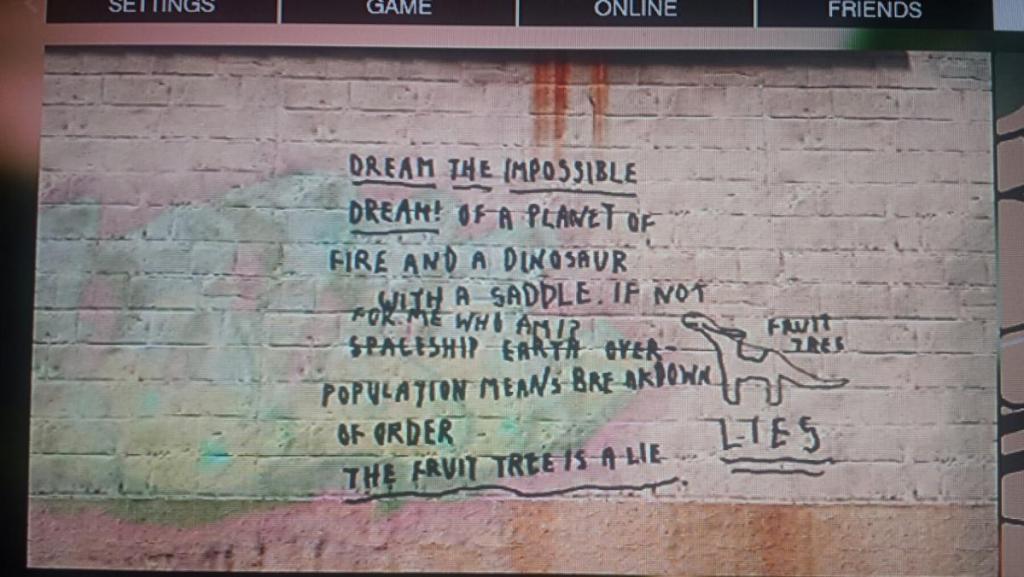 SETTINGS
GAME
ONLINE
FRIENDS
DREAM THE IMPOSSIBLE
DREAM! OF A PLANET OF
FIRE AND A DINOSAUR
WITH A SADDLE. IF NOT
FOR ME WHO AM I?
SPACESHIP EARTH OVER-
POPULATION MEAN'S BREAKDOWN
OF ORDER
THE FRUIT TREE IS A LIE.
FRUIT
TREE
LIES